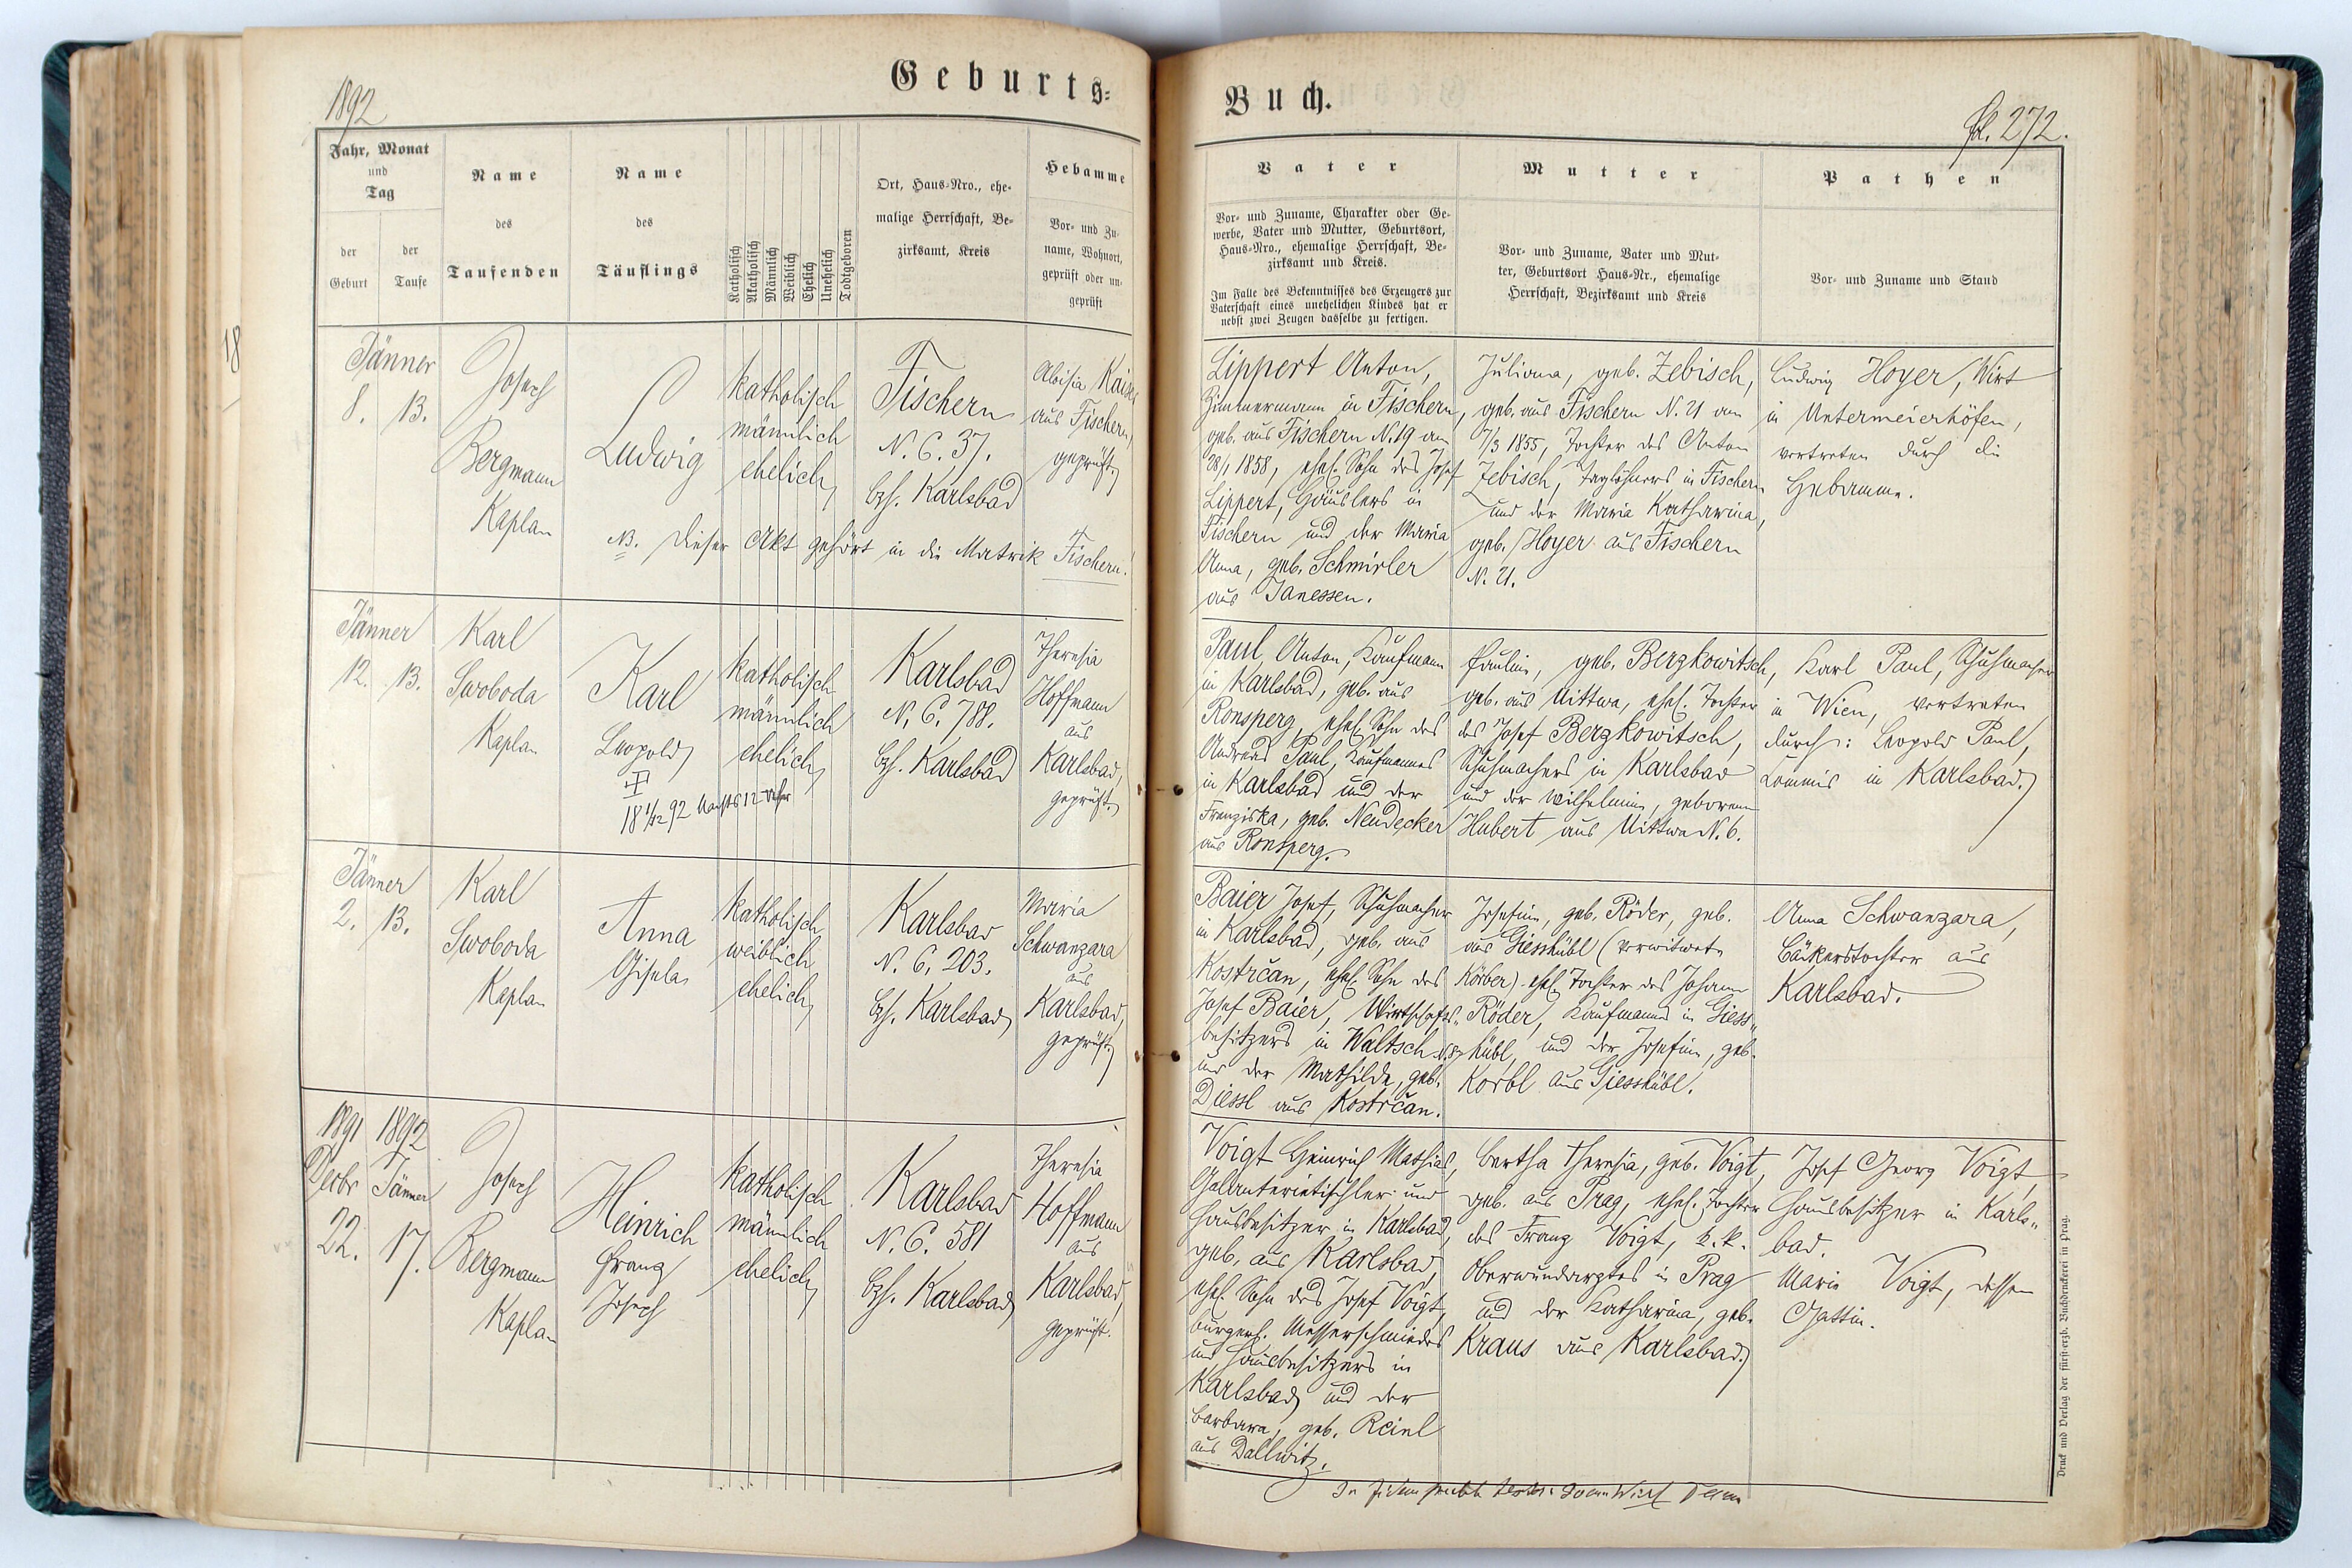 1892
Geburts-
Jahr, Monat
und
Tag
der
Geburt
der
Taufe
Name
des
Taufenden
Name
des
Täuflings
Katholisch
Akatholisch
Männlich
Weiblich
Ehelich
Unehelich
Todtgeboren
Ort, Haus-Nro., ehe-
malige Herrschaft, Be-
zirksamt, Kreis
Hebamme
Vor- und Zu-
name, Wohnort,
geprüft oder un-
geprüft
18
Jänner
8. 13.
Joseph
Bergmann
Kaplan
Ludwig
katholisch
männlich
ehelich
Fischern
N. C. 37.
Bzh. Karlsbad
Aloisia Kaiser
aus Fischern,
geprüft.
NB. Dieser Akt gehört in die Matrik Fischern!
Jänner
12. 13.
Karl
Swoboda
Kaplan
Karl
Leopold
18 1/12 92 Nachts 12 Uhr
katholisch
männlich
ehelich
Karlsbad
N. C. 788.
Bzh. Karlsbad
Theresia
Hoffmann
aus
Karlsbad,
geprüft.
Jänner
2. 13.
Karl
Swoboda
Kaplan
Anna
Gisela
katholisch
weiblich
ehelich
Karlsbad
N. C. 203.
Bzh. Karlsbad
Maria
Schwanzara
aus
Karlsbad,
geprüft.
1891 1892
Decbr Jänner
22. 17.
Joseph
Bergmann
Kaplan
Heinrich
Franz
Joseph
katholisch
männlich
ehelich
Karlsbad
N. C. 581
Bzh. Karlsbad
Theresia
Hoffmann
aus
Karlsbad,
geprüft.
Buch.
Fol. 272.
Vater
Vor- und Zuname, Charakter oder Ge-
werbe, Vater und Mutter, Geburtsort,
Haus-Nro., ehemalige Herrschaft, Be-
zirksamt und Kreis.
Im Falle des Bekenntnisses des Erzeugers zur
Vaterschaft eines unehelichen Kindes hat er
nebst zwei Zeugen dasselbe zu fertigen.
Mutter
Vor- und Zuname, Vater und Mut-
ter, Geburtsort Haus-Nr., ehemalige
Herrschaft, Bezirksamt und Kreis
Pathen
Vor- und Zuname und Stand
Lippert Anton,
Zimmermann in Fischern,
geb. aus Fischern N. 19 am
28/1 1858, ehel. Sohn des Josef
Lippert, Häuslers in
Fischern und der Maria
Anna, geb. Schmirler
aus Janessen.
Juliana, geb. Zebisch,
geb. aus Fischern N. 21 am
7/3 1855, Tochter des Anton
Zebisch, Taglöhners in Fischern
und der Maria Katharina,
geb. Hoyer aus Fischern
N. 21.
Ludwig Hoyer, Wirt
in Untermeierhöfen,
vertreten durch die
Hebamme.
Paul Anton, Kaufmann
in Karlsbad, geb. aus
Ronsperg, ehel. Sohn des
Andreas Paul, Kaufmannes
in Karlsbad und der
Franziska, geb. Neudecker
aus Ronsperg.
Paulin, geb. Berzkowitsch,
geb. aus Uittwa, ehel. Tochter
des Josef Berzkowitsch,
Schuhmachers in Karlsbad
und der Wilhelmine, geborene
Hubert aus Uittwa N. 6.
Karl Paul, Schuhmacher
in Wien, vertreten
durch: Leopold Paul,
Commis in Karlsbad.
Baier Josef, Schuhmacher
in Karlsbad, geb. aus
Kostrčan, ehel. Sohn des
Josef Baier, Wirtschafts-
besitzers in Waltsch
und der Mathilde, geb.
Diessl aus Kostrčan.
Josefine, geb. Röder, geb.
aus Giesshübl (verwitwete
Körber) ehel. Tochter des Johann
Röder, Kaufmanns in Giess-
hübl, und der Josefine, geb.
Korbl aus Giesshübl.
Anna Schwanzara,
Bäckerstochter aus
Karlsbad.
Voigt Heinrich Mathias,
Galanterietischler und
Hausbesitzer in Karlsbad,
geb. aus Karlsbad,
ehel. Sohn des Josef Voigt,
bürgerl. Messerschmiedes
und Hausbesitzers in
Karlsbad und der
Barbara, geb. Reinl
aus Dallwitz.
Bertha Theresia, geb. Voigt,
geb. aus Prag, ehel. Tochter
des Franz Voigt, k. k.
Oberwundarztes in Prag
und der Katharina, geb.
Kraus aus Karlsbad.
Josef Georg Voigt,
Hausbesitzer in Karls-
bad.
Marie Voigt, dessen
Gattin.
Druck und Verlag der fürst-erzb. Buchdruckerei in Prag.